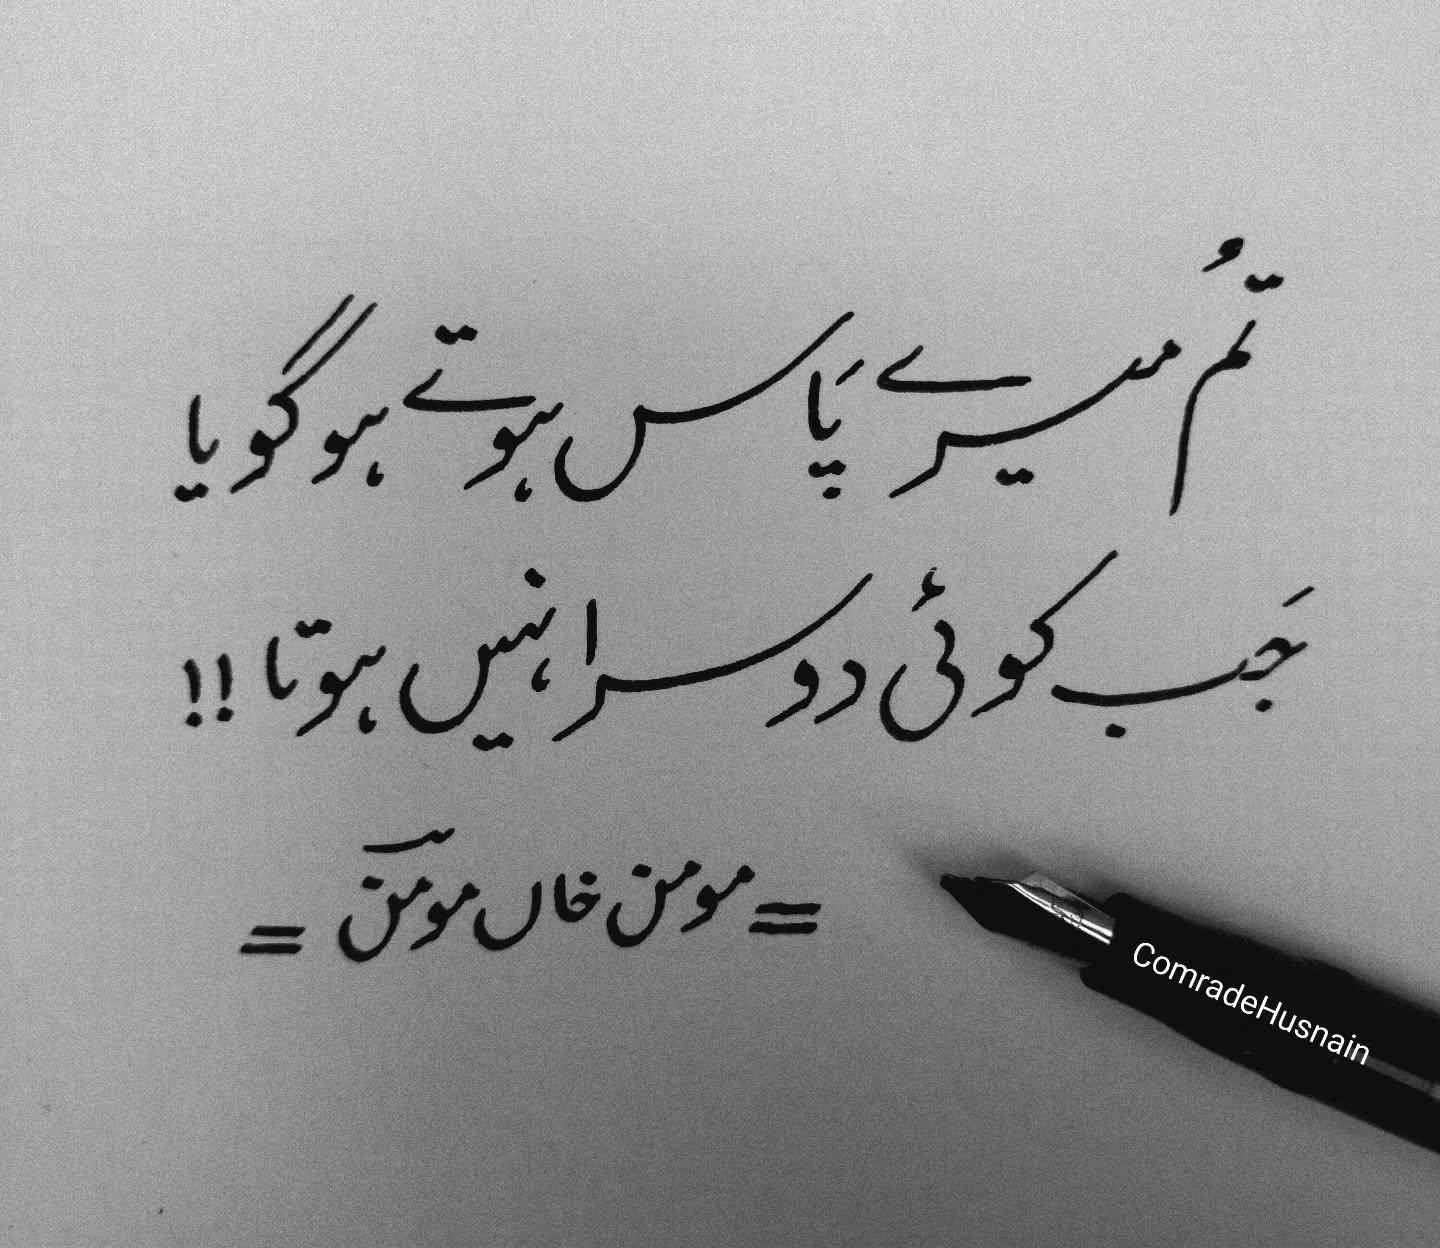 تُم میرے پَاس ہوتے ہو گویا
جَب کوئی دوسرا نہیں ہوتا !!
= مومن خاں مومنؔ =
ComradeHusnain